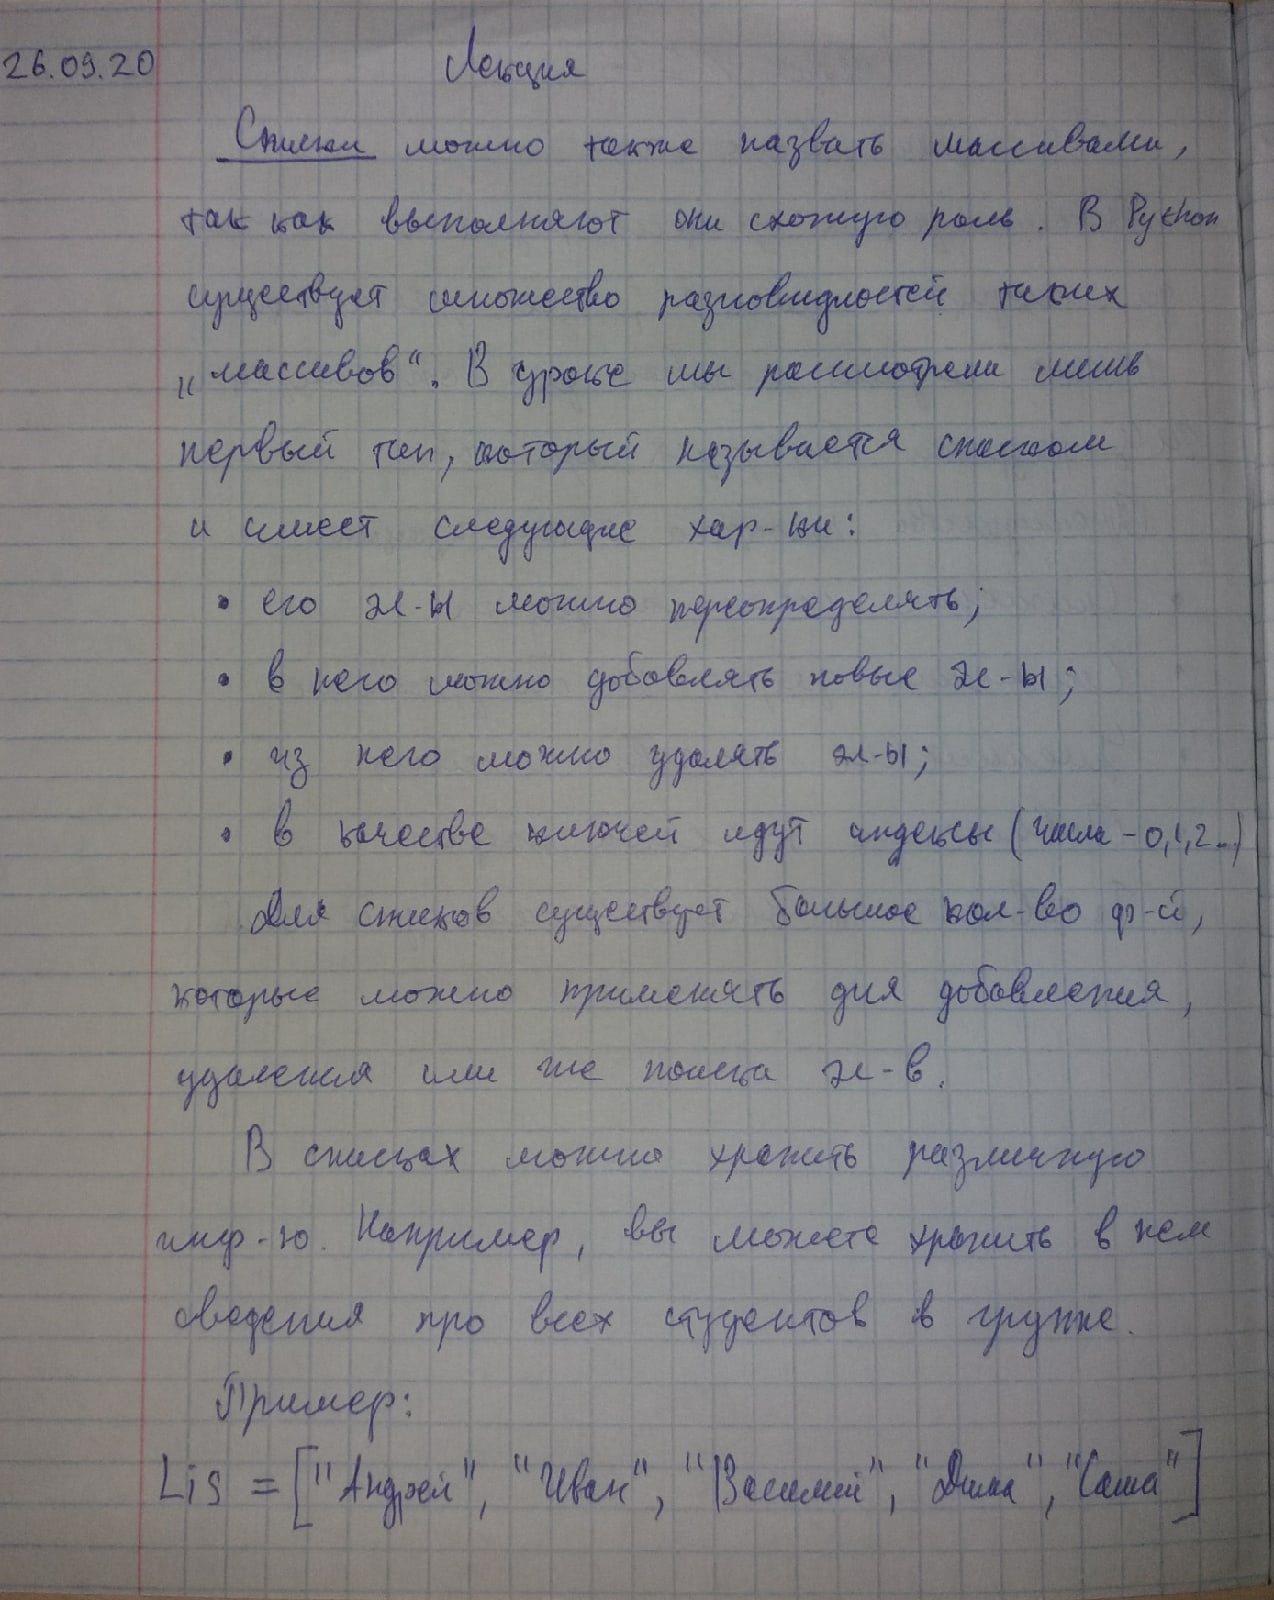 26.09.20 Лекция
Списки можно также назвать массивами,
так как выполняют они схожую роль. В Python
существует множество разновидностей таких
„массивов“. В уроке мы рассмотрели лишь
первый тип, который называется списком
и имеет следующие хар-ки:
• его эл-ы можно переопределять;
• в него можно добавлять новые эл-ы;
• из него можно удалять эл-ы;
• в качестве ключей идут индексы (числа - 0,1,2..)
Для списков существует большое кол-во ф-й,
которые можно применять для добавления,
удаления или же поиска эл-в.
В списках можно хранить различную
инф-ю. Например, вы можете хранить в нем
сведения про всех студентов в группе.
Пример:
Lis = ["Андрей", "Иван", "Василий", "Дима", "Саша"]